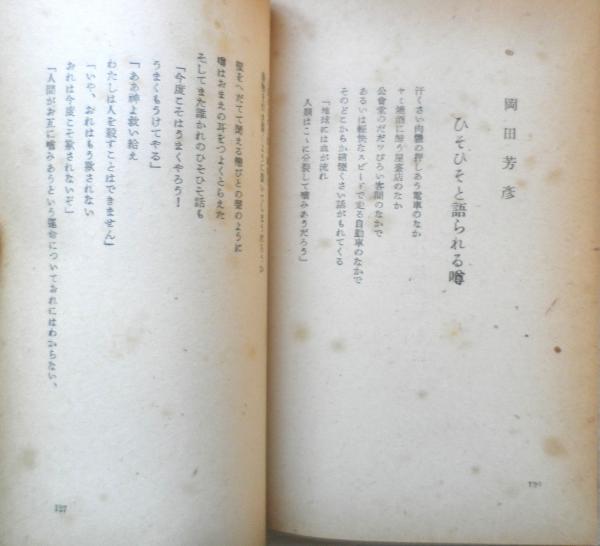 岡田芳彦
ひそひそと語られる噂
汗くさい肉體の押しあう電車のなか
ヤミ酒に酔う屋臺店のなか
公會堂のだだッぴろい客間のなかで
あるいは軽快なスピードで走る自動車のなかで
そのどこからか硝煙くさい話がもれてくる
「地球には血が流れ
人類はこゝに分裂して噛みあうだろう」
壁をへだてて聞える鬼びとの聲のように
噂はおまえの耳をつよくとらえた
そしてまた誰かれのひそひそ話も
「今度こそはうまくやろう！
うまくもうけてやる」
「ああ神よ救い給え
わたしは人を殺すことはできません」
「いや、おれはもう欺されない
おれは今度こそ欺されないぞ」
「人間がお互に噛みあうという運命についておれにはわからない、
127